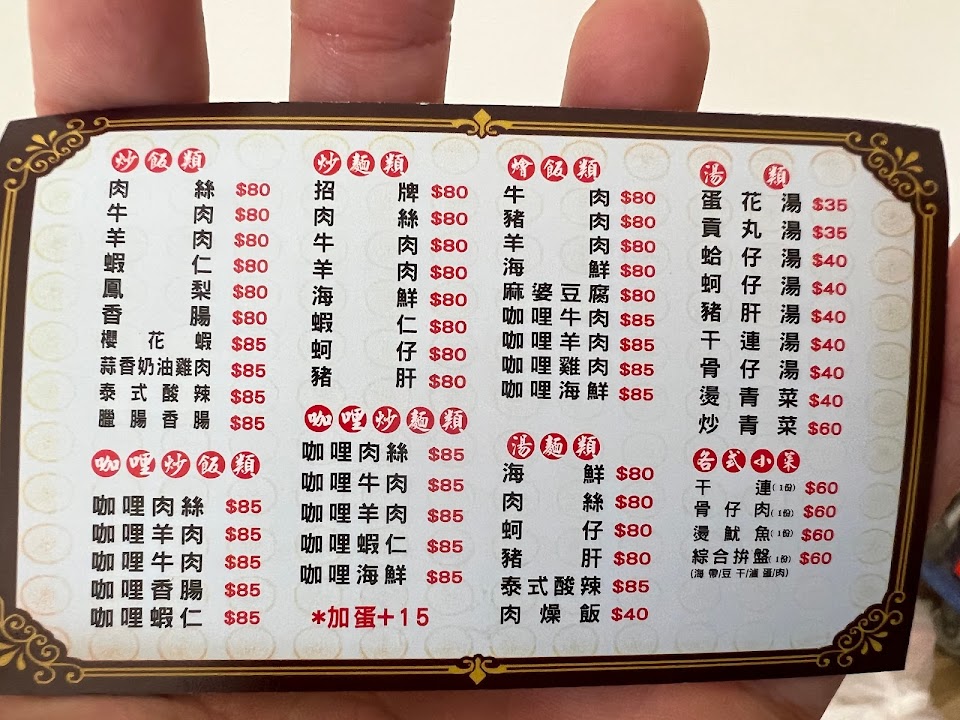 炒飯類
肉絲 $80
牛肉 $80
羊肉 $80
蝦仁 $80
鳳梨 $80
香腸 $80
櫻花蝦 $85
蒜香奶油雞肉 $85
泰式酸辣 $85
臘腸香腸 $85
咖哩炒飯類
咖哩肉絲 $85
咖哩羊肉 $85
咖哩牛肉 $85
咖哩香腸 $85
咖哩蝦仁 $85
炒麵類
招牌 $80
肉絲 $80
牛肉 $80
羊肉 $80
海鮮 $80
蝦仁 $80
蚵仔 $80
豬肝 $80
咖哩炒麵類
咖哩肉絲 $85
咖哩牛肉 $85
咖哩羊肉 $85
咖哩蝦仁 $85
咖哩海鮮 $85
*加蛋+15
燴飯類
牛肉 $80
豬肉 $80
羊肉 $80
海鮮 $80
麻婆豆腐 $80
咖哩牛肉 $85
咖哩羊肉 $85
咖哩雞肉 $85
咖哩海鮮 $85
湯麵類
海鮮 $80
肉絲 $80
蚵仔 $80
豬肝 $80
泰式酸辣 $85
肉燥飯 $40
湯類
蛋花湯 $35
貢丸湯 $35
蛤仔湯 $40
蚵仔湯 $40
豬肝湯 $40
干連湯 $40
骨仔湯 $40
燙青菜 $40
炒青菜 $60
各式小菜
干連(1份) $60
骨仔肉(1份) $60
燙魷魚(1份) $60
綜合拚盤(1份) $60
(海帶/豆干/滷蛋/肉)